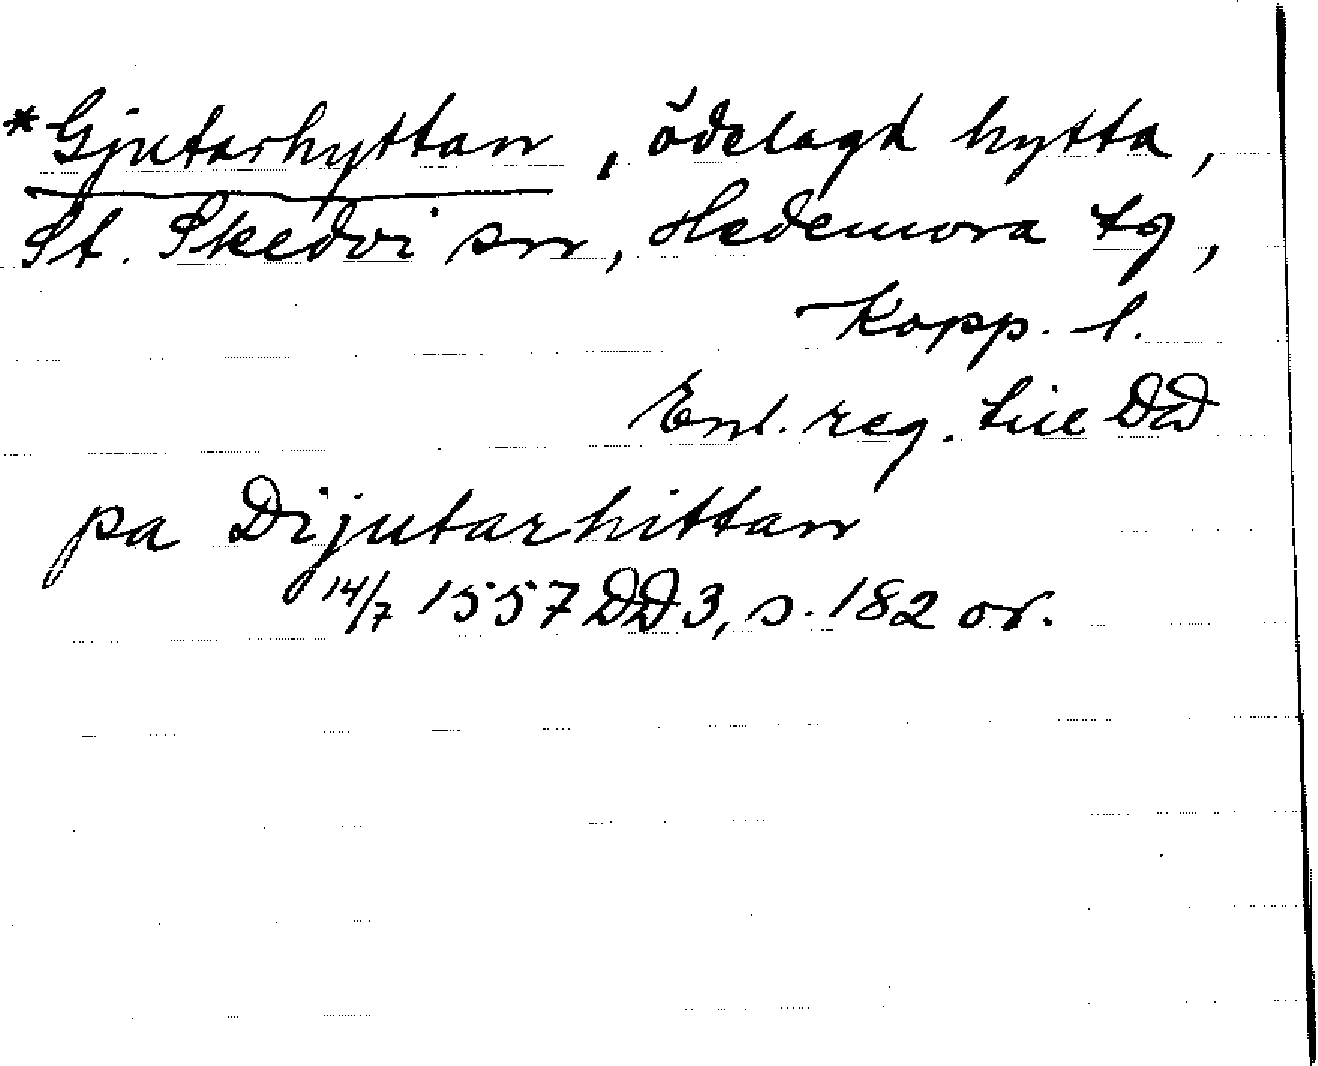 *Gjutarhyttan, ödelagd hytta,
St. Skedvi sn, Hedemora tg,
Kopp. l.
Enl. reg. till DD
pa Dijutarhittan
14/7 1557 DD 3, s. 182 or.